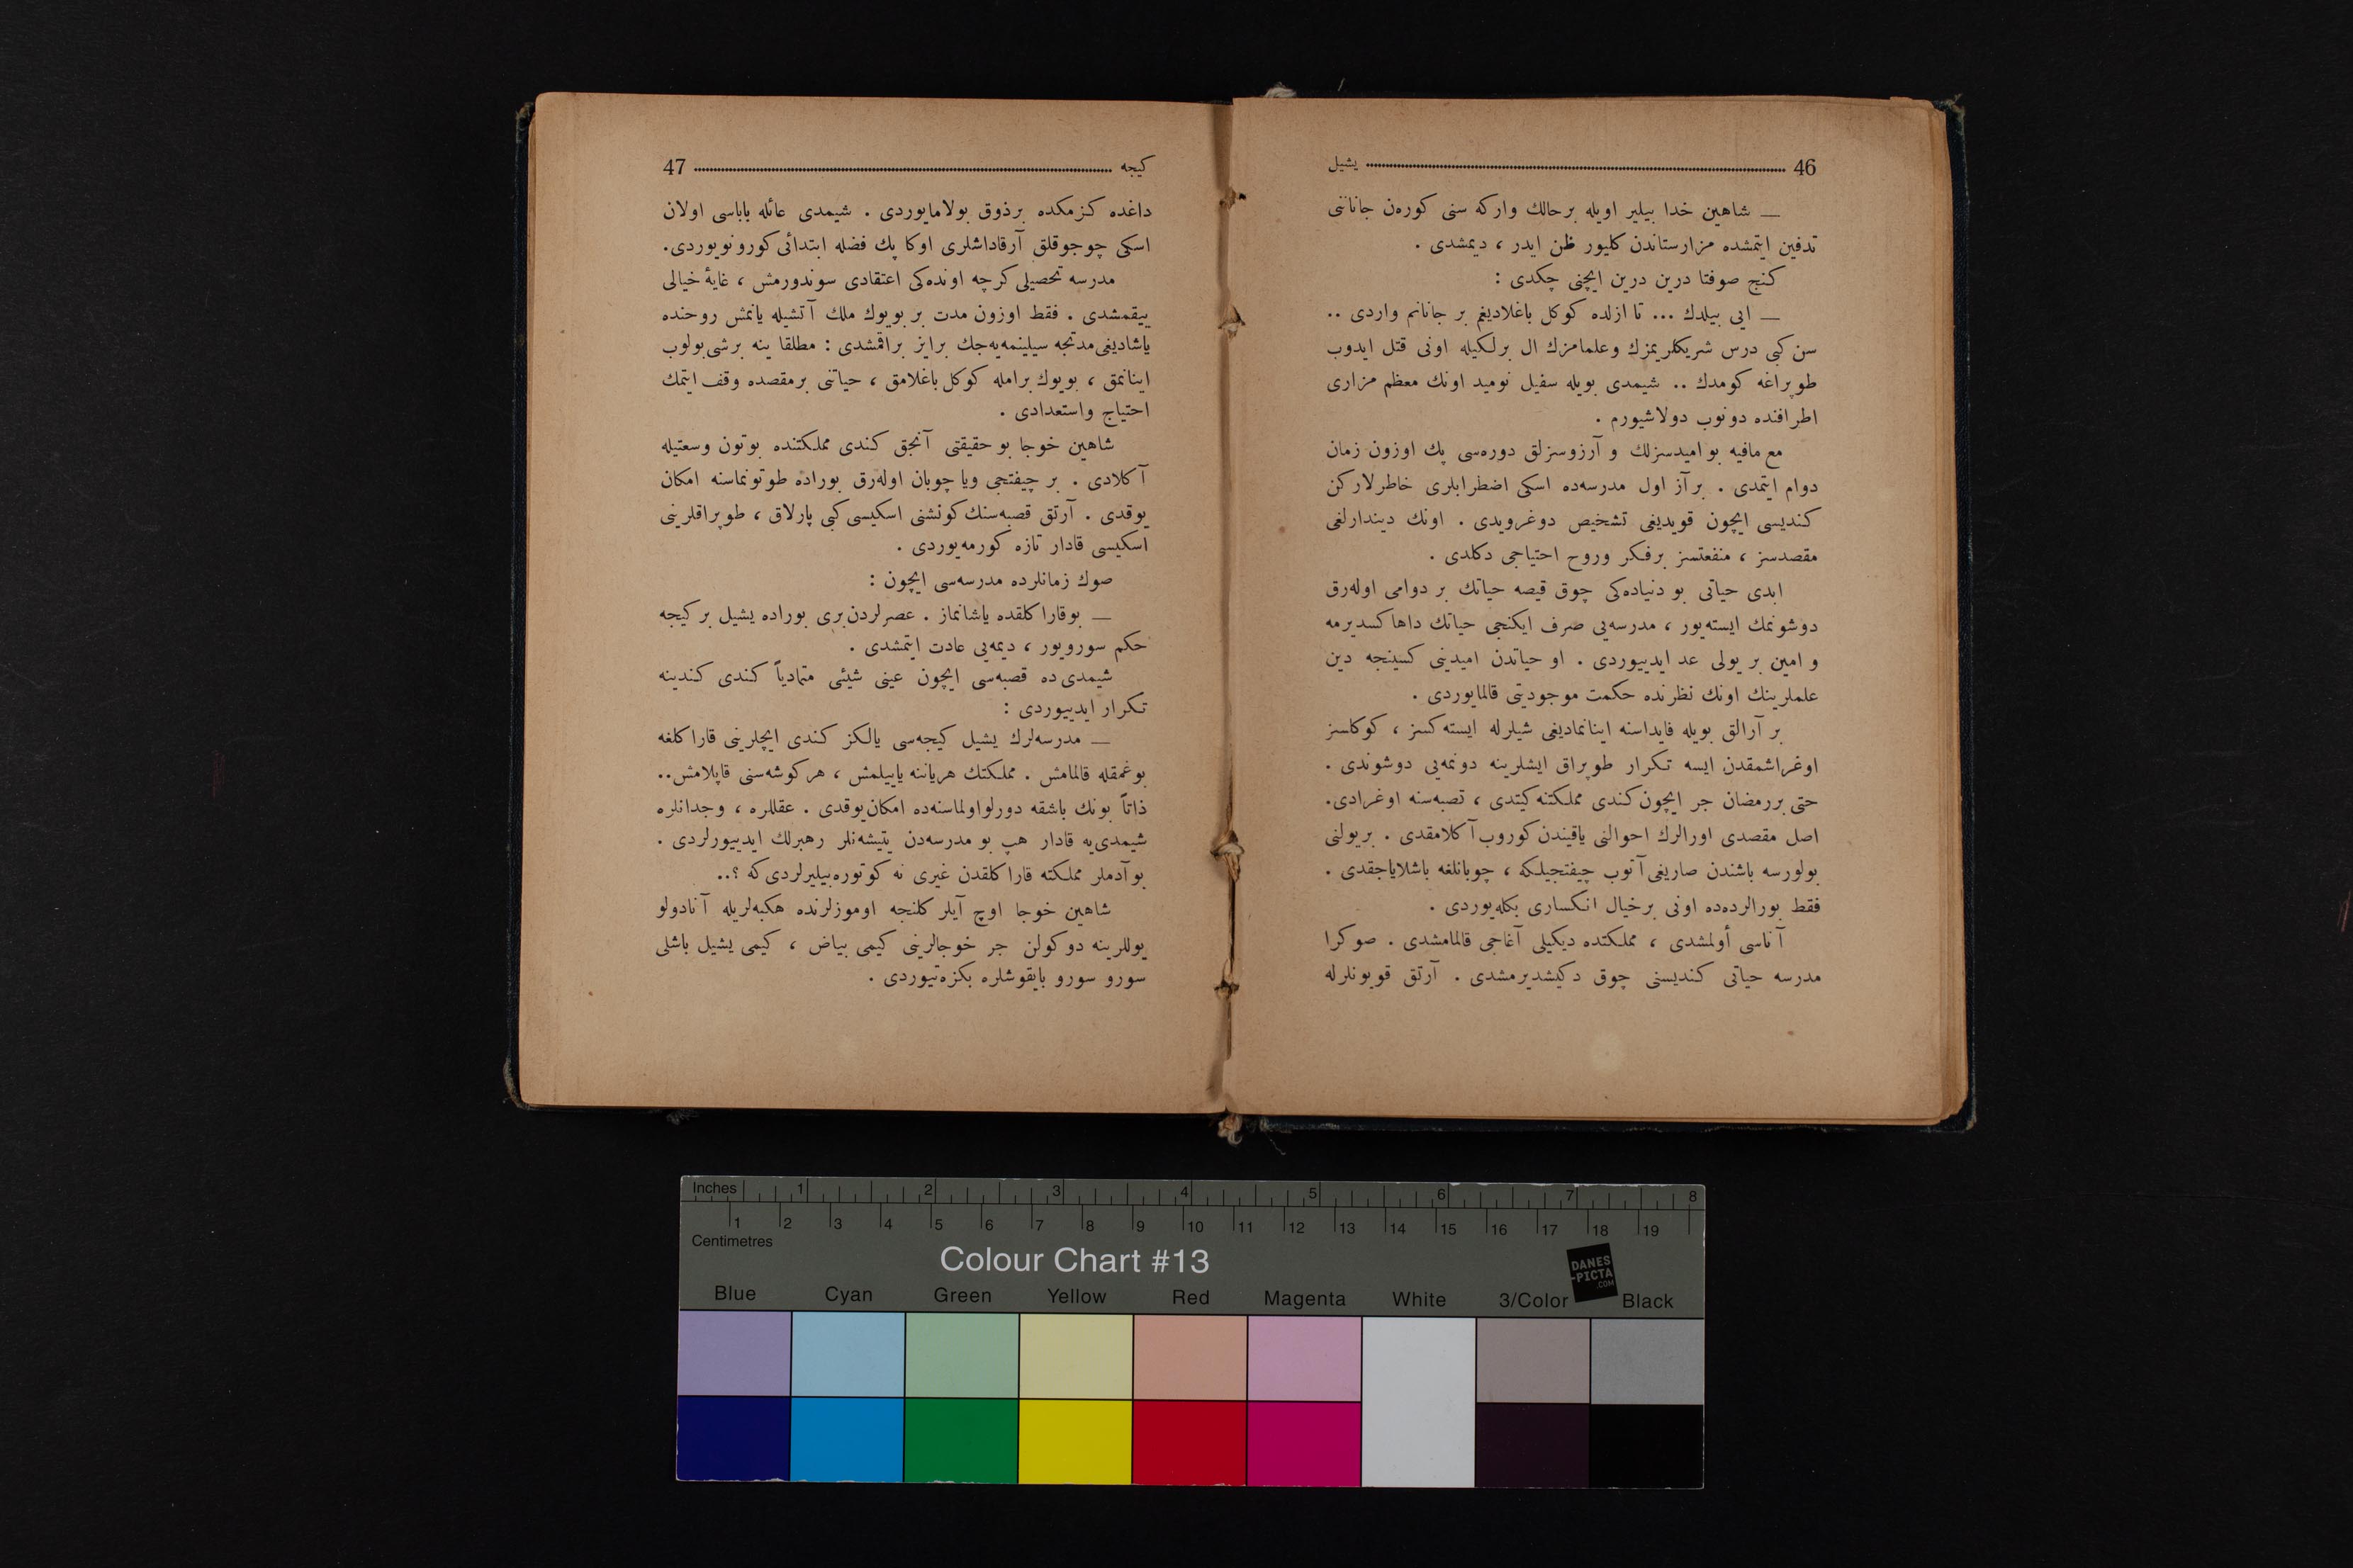 46 يشيل
— شاهين خدا بيلير اويله برحالك واركه سنى كورەن جاناننى
تدفين ايتمشده مزارستاندن كليور ظن ايدر ، ديمشدى .
كنج صوفتا درين درين ايچنى چكدى :
— ايى بيلدك ... تا ازلده كوكل باغلاديغم بر جانانم واردى ..
سن كبى درس شريكلريمزك وعلمامزك ال برلكيله اونى قتل ايدوب
طوپراغه كومدك .. شيمدى بويله سفيل نوميد اونك معظم مزارى
اطرافنده دونوب دولاشيورم .
مع مافيه بو اميدسزلك و آرزوسزلق دورەسى پك اوزون زمان
دوام ايتمدى . برآز اول مدرسەدە اسكى اضطرابلرى خاطرلاركن
كنديسى ايچون قويديغى تشخيص دوغرويدى . اونك ديندارلغى
مقصدسز ، منفعتسز برفكر وروح احتياجى دكلدى .
ابدى حياتى بو دنيادەكى چوق قيصه حياتك بر دوامى اولەرق
دوشونمك ايستەيور ، مدرسەيى صرف ايكنجى حياتك داها كسديرمه
و امين بر يولى عد ايدييوردى . او حياتدن اميدينى كسينجه دين
علملرينك اونك نظرنده حكمت موجوديتى قالمايوردى .
بر آرالق بويله فايداسنه اينانماديغى شيلرله ايستەكسز ، كوكاسز
اوغراشمقدن ايسه تكرار طوپراق ايشلرينه دونمەيى دوشوندى .
حتى بررمضان جر ايچون كندى مملكتنه كيتدى ، قصبەسنه اوغرادى.
اصل مقصدى اورالرك احوالنى ياقيندن كوروب آكلامقدى . بريولنى
بولورسه باشندن صاريغى آتوب چيفتجيلكه ، چوبانلغه باشلاياجقدى .
فقط بورالردەدە اونى برخيال انكسارى بكلەيوردى .
آناسى أولمشدى ، مملكتده ديكيلى آغاجى قالمامشدى . صوكرا
مدرسه حياتى كنديسنى چوق دكيشديرمشدى . آرتق قويونلرله
كيجه 47
داغده كزمكده برذوق بولامايوردى . شيمدى عائله باباسى اولان
اسكى چوجوقلق آرقاداشلرى اوكا پك فضله ابتدائى كورونويوردى.
مدرسه تحصيلى كرچه اوندەكى اعتقادى سوندورمش ، غايهٔ خيالى
ييقمشدى . فقط اوزون مدت بر بويوك ملك آتشيله يانمش روحنده
ياشاديغى مدتجه سيلينمەيەجك برايز براقمشدى : مطلقا ينه برشى بولوب
اينانمق ، بويوك برامله كوكل باغلامق ، حياتنى برمقصده وقف ايتمك
احتياج واستعدادى .
شاهين خوجا بو حقيقتى آنجق كندى مملكتنده بوتون وسعتيله
آكلادى . بر چيفتجى ويا چوبان اولەرق بوراده طوتونماسنه امكان
يوقدى . آرتق قصبەسنك كونشنى اسكيسى كبى پارلاق ، طوپراقلرينى
اسكيسى قادار تازه كورمەيوردى .
صوك زمانلرده مدرسەسى ايچون :
— بوقاراكلقده ياشانماز . عصرلردن برى بوراده يشيل بركيجه
حكم سورويور ، ديمەيى عادت ايتمشدى .
شيمدى ده قصبەسى ايچون عينى شيئى متمادياً كندى كندينه
تكرار ايدييوردى :
— مدرسەلرك يشيل كيجەسى يالكز كندى ايچلرينى قاراكلغه
بوغمقله قالمامش . مملكتك هرياننه ياييلمش ، هركوشەسنى قاپلامش..
ذاتاً بونك باشقه دورلواولماسنەدە امكان يوقدى . عقللره ، وجدانلره
شيمدىيه قادار هپ بو مدرسەدن يتيشەنلر رهبرلك ايدييورلردى .
بوآدملر مملكته قاراكلقدن غيرى نه كوتورەبيليرلردى كه ؟..
شاهين خوجا اوچ آيلر كلنجه اوموزلرنده هكبەلريله آنادولو
يوللرينه دوكولن جر خوجالرينى كيمى بياض ، كيمى يشيل باشلى
سورو سورو بايقوشلره بكزەتيوردى .
Inches 1 2 3 4 5 6 7 8
1 2 3 4 5 6 7 8 9 10 11 12 13 14 15 16 17 18 19
Centimetres
Colour Chart #13
DANES
-PICTA
.COM
Blue Cyan Green Yellow Red Magenta White 3/Color Black